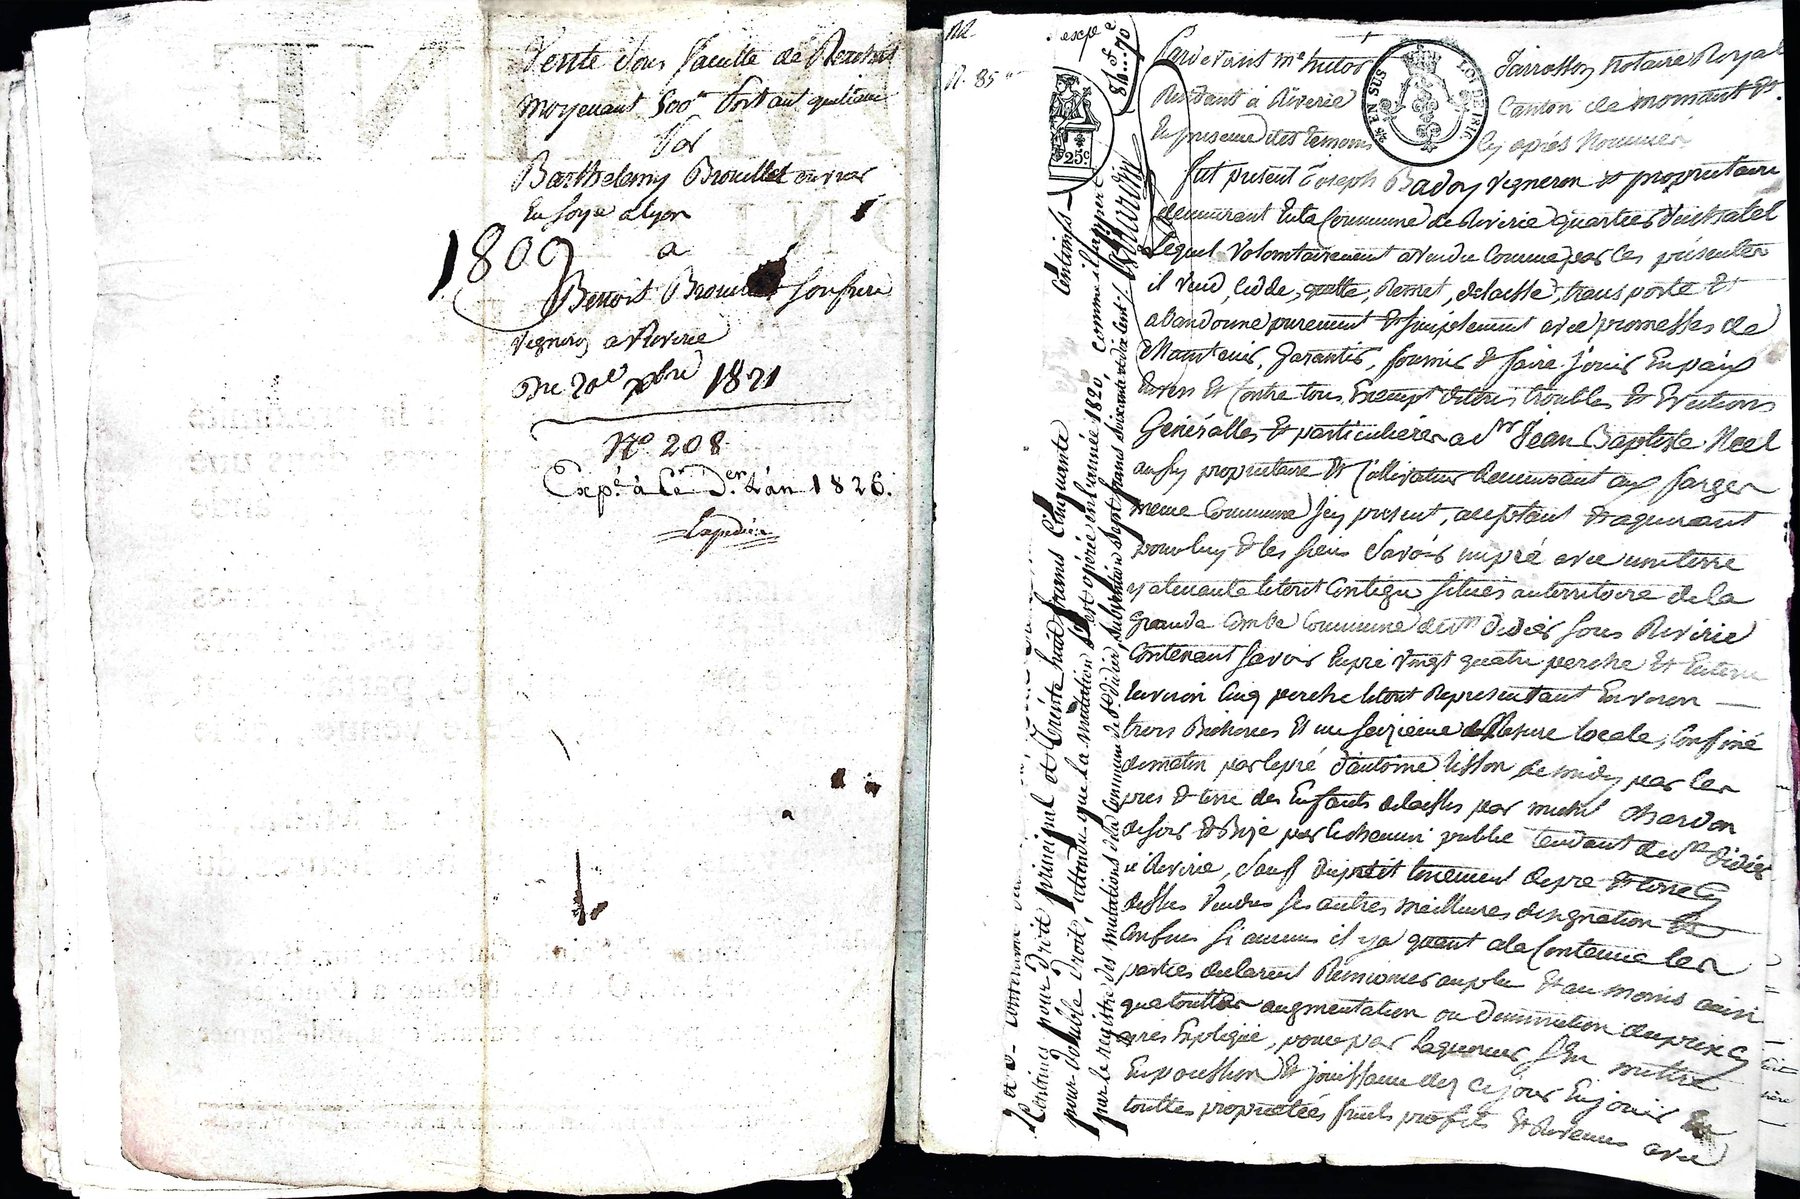 Vente sous faculté de Rachat
moyenant 500# portant quittance
Par
Barthelemy Brouillet ouvrier
En soye a lyon
a
1809
Benoit Brouillet son frere
vigneron a Riverie
Du 20e xbre 1821
N° 208
Expé. à Cé Der. d'an 1826.
N. 85
expé
25c
EN SUS
LOI DE 1816
Pardevant me hector Jarrosson Notaire Royal
Residant à Riverie Canton de mornant Et
En presence des temoins Cy après Nommés
fut present Joseph Badoy vigneron et proprietaire
demeurant En la Commune de Riverie quartier Duchatel
Lequel volontairement a vendu Comme par Ces présentes
il vend, Cedde, quitte, Remet, delaisse, transporte Et
abandonne purement Et simplement avec promesses de
Maintenir, Garantir, fournir Et faire Jouir En paix
Envers Et Contre tous Exempt de tous troubles Et Evictions
Généralles Et particulieres a Sr Jean Baptiste Noel
aussy proprietaire Et Cultivateur demeurant aux farges
meme Commune Jcy present, acceptant Et aquerant
pour luy Et les siens Savoir un pré avec une terre
y atenante le tout Contigu situés au territoire de la
Grande Combe Commune de St Didier sous Riverie
Contenant savoir En pré vingt quatre perche Et En terre
Environ Cinq perche le tout Representant Environ
trois Bicherées Et un seizieme de Mesure locale, Confiné
de matin par le pré d'antoine Lisson de midy par les
prés Et terre des Enfants delaissés par michel Chardon
de soir Et Bize par le chemin public tendant de St Didier
a Riverie, Sauf du petit tenement de pré Et terre Cy
dessus Vendus ses autres meilleures designation Et
Confins si aucuns il y a quant a la Contenue les
parties declarent Renoncer au plus Et au moins ainsi
qua toutte augmentation ou Diminution du prix Cy
apres Expliqué, pour par l'aquereur s'En mettre
En possession Et jouissance des ce jour En jouir En
touttes proprietées fruits profits Et Revenus avec
Centimes pour Droit principal et Trente huit francs Cinquante Centimes
pour Double Droit, attendu que la mutation s'est opérée en l'année 1820, comme il appert
par le registre des mutations de la Commune de St Didier,